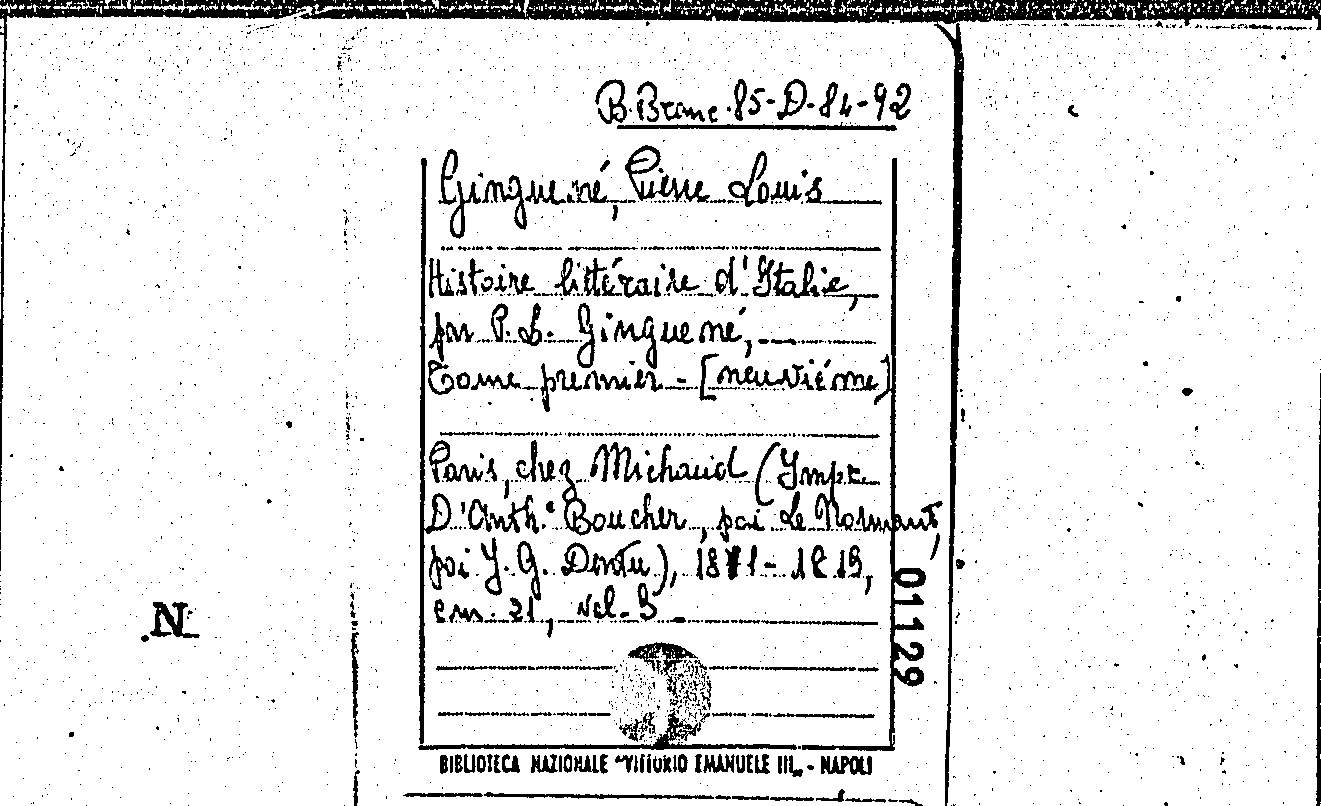 B. Branc. 85-D-84-92
Ginguené, Pierre Louis
Histoire littéraire d'Italie,
par P. L. Ginguené, ...
Tome premier - [neuviéme]
Paris, chez Michaud (Impr.
D'Anth.e Boucher, poi Le Normant,
poi J. G. Dentu), 1811-1819,
cm. 21, vol. 9
01129
N
BIBLIOTECA NAZIONALE "VITTORIO EMANUELE III„ - NAPOLI